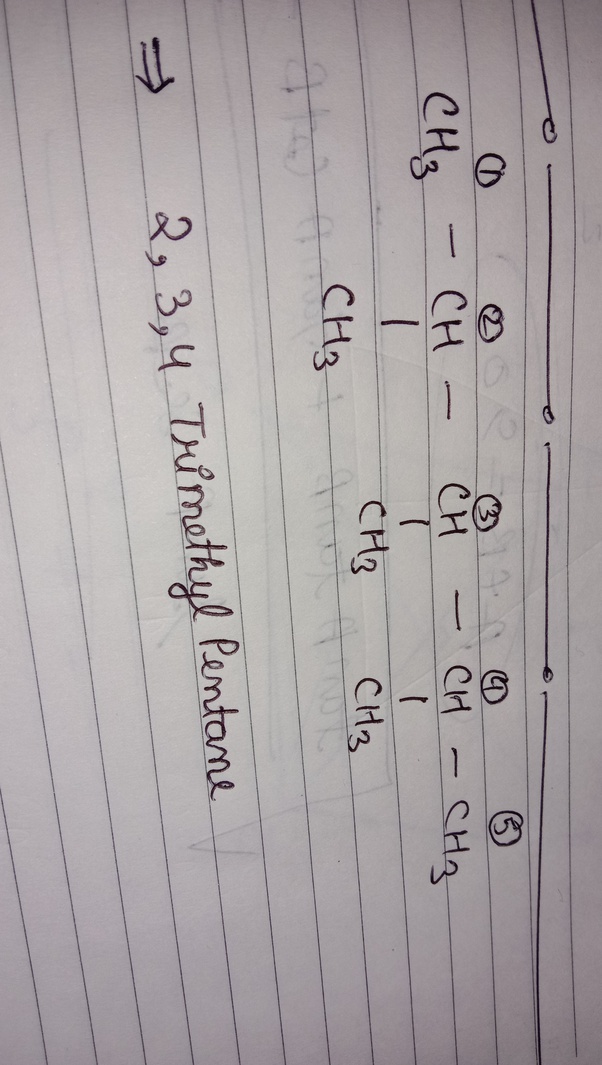 ① ② ③ ④ ⑤
CH3 - CH - CH - CH - CH3
| | |
CH3 CH3 CH3
⇒ 2,3,4 Trimethyl Pentane